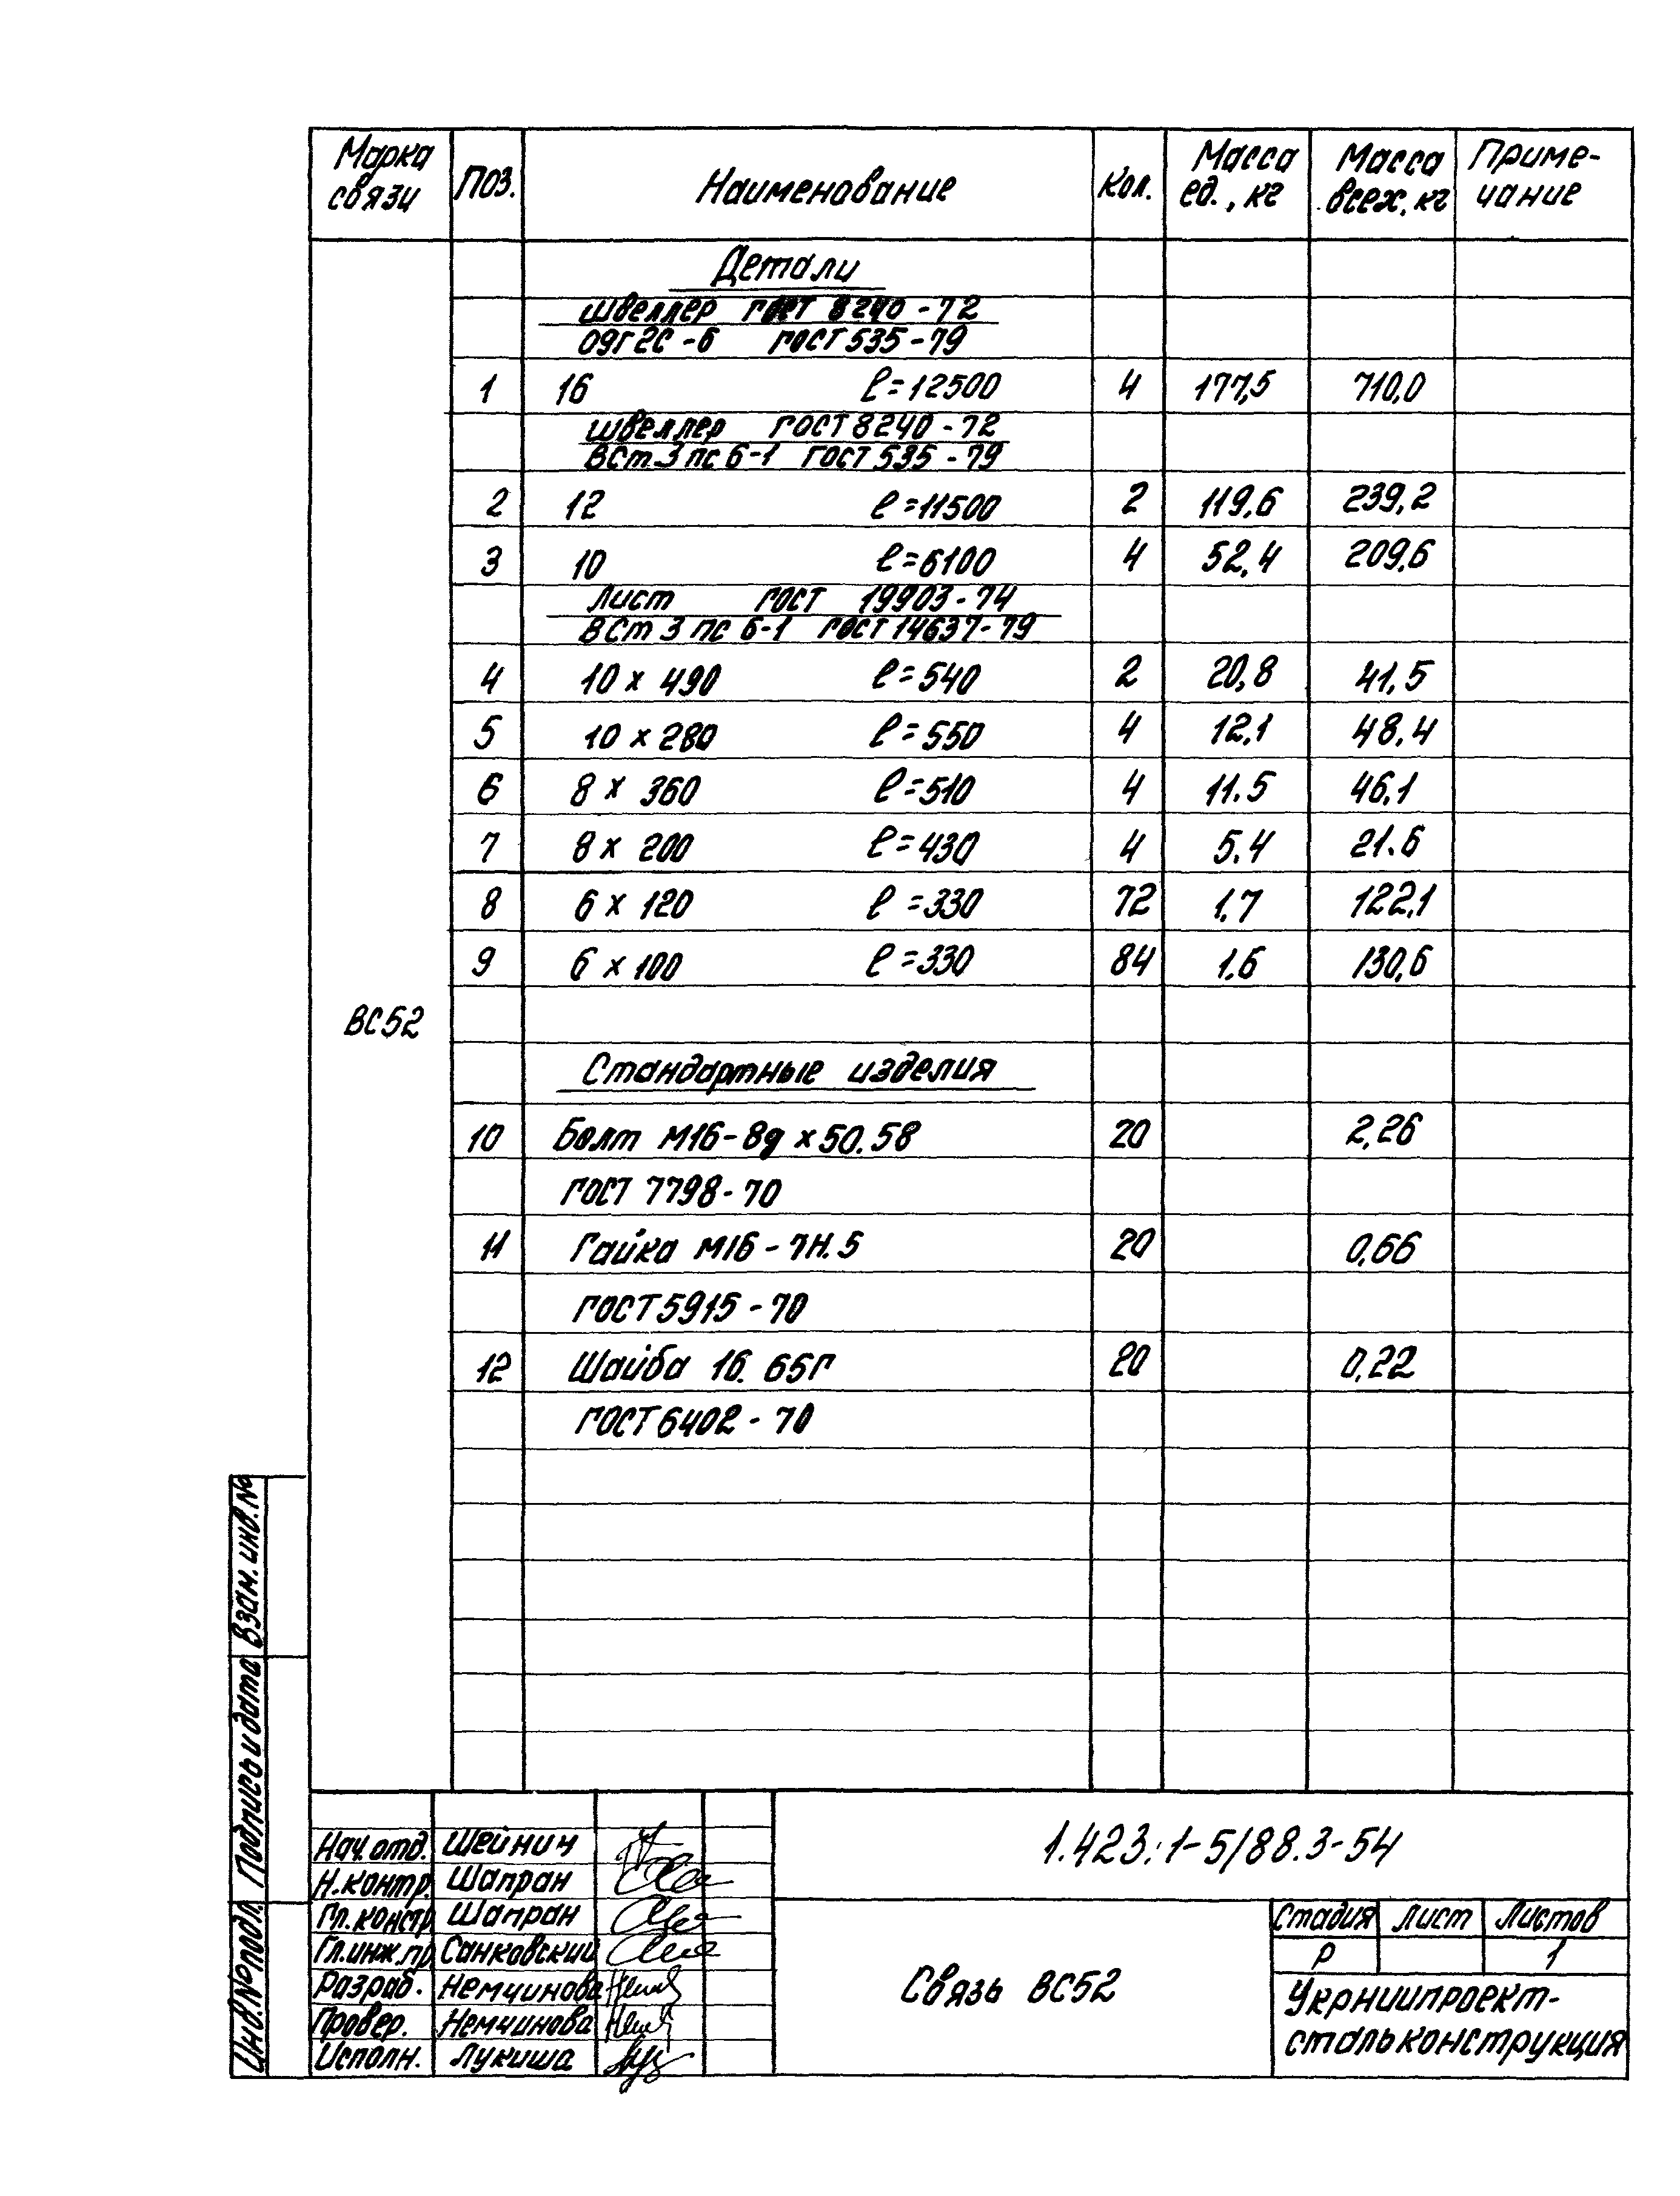 Марка связи Поз. Наименование Кол. Масса ед., кг Масса всех, кг Приме-чание
Детали
швеллер ГОСТ 8240-72
09Г2С-6 ГОСТ 535-79
1 16 ℓ=12500 4 177,5 710,0
швеллер ГОСТ 8240-72
ВСт3пс6-1 ГОСТ 535-79
2 12 ℓ=11500 2 119,6 239,2
3 10 ℓ=6100 4 52,4 209,6
Лист ГОСТ 19903-74
ВСт3пс6-1 ГОСТ 14637-79
4 10 х 490 ℓ=540 2 20,8 41,5
5 10 х 280 ℓ=550 4 12,1 48,4
6 8 х 360 ℓ=510 4 11.5 46,1
7 8 х 200 ℓ=430 4 5.4 21.6
8 6 х 120 ℓ=330 72 1,7 122,1
9 6 х 100 ℓ=330 84 1.6 130,6
ВС52
Стандартные изделия
10 Болт М16-8g х 50.58 20 2,26
ГОСТ 7798-70
11 Гайка М16-7Н.5 20 0,66
ГОСТ 5915-70
12 Шайба 16. 65Г 20 0,22
ГОСТ 6402-70
Взам. инв.№
Подпись и дата
Инв.№ подл.
Нач. отд. Шейнин
Н.контр. Шапран
Гл.констр Шапран
Гл.инж.пр Санковский
Разраб. Немчинова
Провер. Немчинова
Исполн. Лукиша
1.423.1-5/88.3-54
Связь ВС52
Стадия Лист Листов
Р 1
Укрниипроект-
стальконструкция